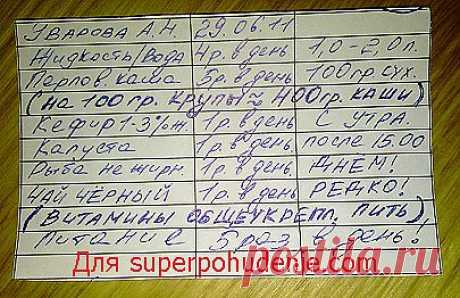 Уварова А.Н. 29.06.11
Жидкость/вода 4р. в день 1,0-2,0л.
Перлов. каша 5р. в день 100гр. сух.
(на 100гр. крупы ≈ 400гр. каши)
Кефир 1-3%ж. 1р. в день С утра.
Капуста 1р. в день после 15.00
Рыба не жирн. 1р. в день. Днём!
Чай чёрный 1р. в день Редко!
(Витамины общеукрепл. пить)
Питание 5 раз в день!
Для superpohudenie.com